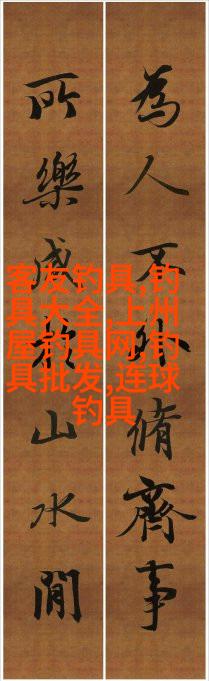 為人不外脩齊事
所樂咸於山水間
客友钓具,钓
具大全,上州
屋钓具网,钓
具批发,连球
钓具